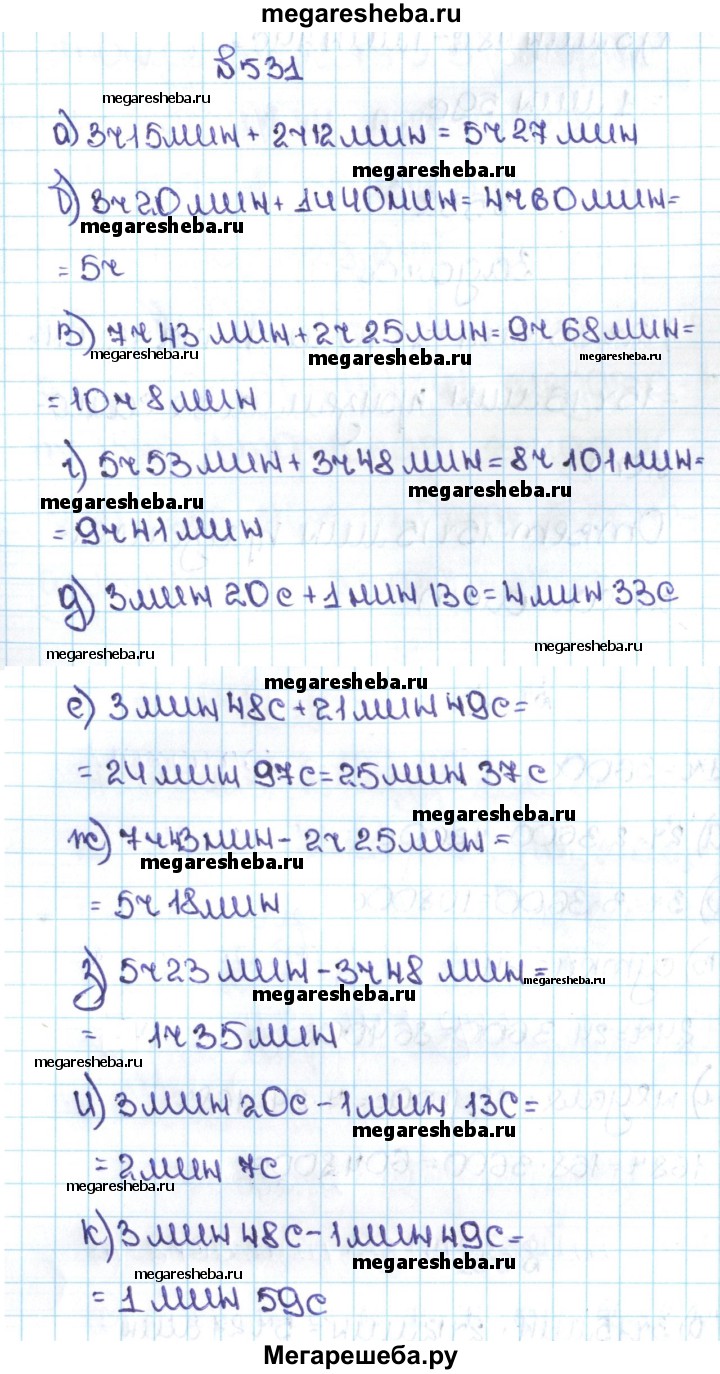 megaresheba.ru
№531
megaresheba.ru
а) 3ч 15мин + 2ч 12мин = 5ч 27мин
megaresheba.ru
б) 3ч 20мин + 1ч 40мин = 4ч 60мин =
megaresheba.ru
= 5ч
в) 7ч 43 мин + 2ч 25мин = 9ч 68мин =
megaresheba.ru megaresheba.ru megaresheba.ru
= 10ч 8мин
г) 5ч 53мин + 3ч 48мин = 8ч 101мин =
megaresheba.ru megaresheba.ru
= 9ч 41мин
д) 3мин 20с + 1мин 13с = 4мин 33с
megaresheba.ru megaresheba.ru
megaresheba.ru
е) 3мин 48с + 21мин 49с =
= 24мин 97с = 25мин 37с
megaresheba.ru
ж) 7ч 43мин - 2ч 25мин =
megaresheba.ru
= 5ч 18мин
з) 5ч 23 мин - 3ч 48 мин =
megaresheba.ru megaresheba.ru
= 1ч 35мин
megaresheba.ru
и) 3мин 20с - 1мин 13с =
megaresheba.ru
= 2мин 7с
megaresheba.ru
к) 3мин 48с - 1мин 49с =
megaresheba.ru
megaresheba.ru
= 1мин 59с
megaresheba.ru
Мегарешеба.ру